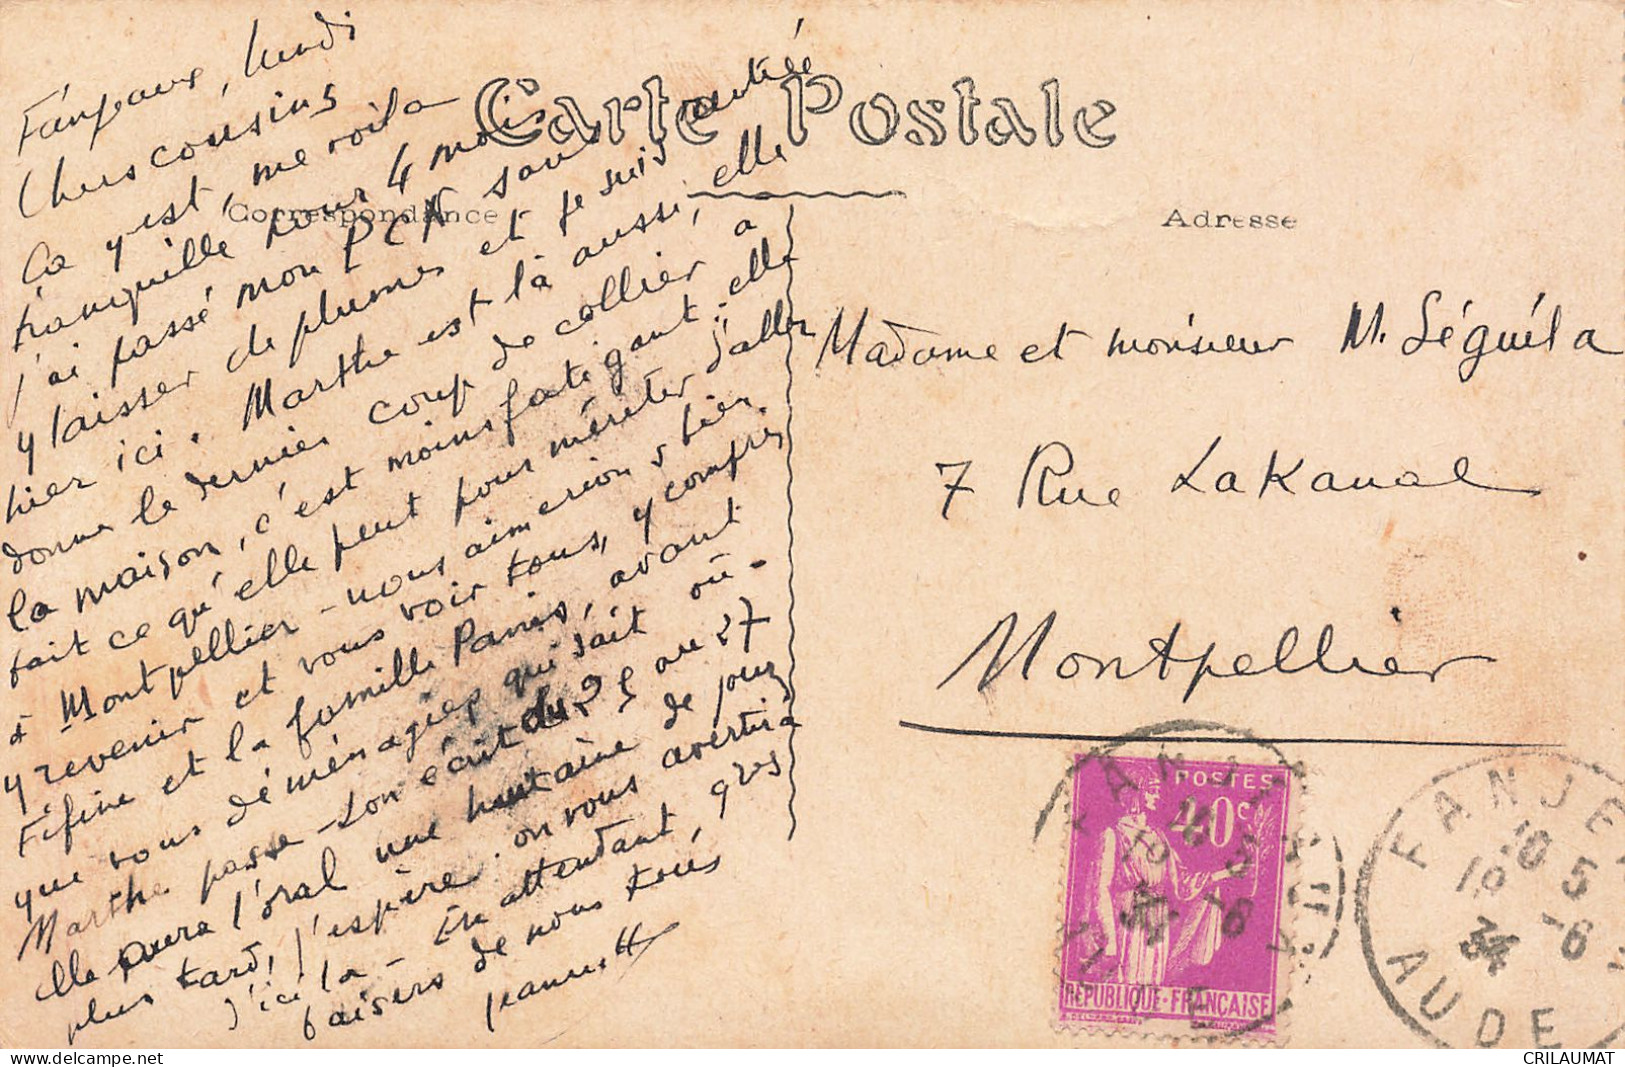 Carte Postale
Correspondance
Adresse
Fanjeaux, lundi
Chers cousins
Ca y est, me voila
tranquille pour 4 mois
j'ai passé mon PCN sans
y laisser de plumes et je suis
hier ici. Marthe est là aussi, elle
donne le dernier coup de collier a
la maison, c'est moins fatigant; elle
fait ce qu'elle peut pour mériter d'aller
à Montpellier - nous aimerions bien
y revenir et vous voir tous, y compris
Fifine et la famille Paris, avant
que vous déménagiez qui sait où -
Marthe passe son écrit du 25 au 27
elle paura l'oral une huitaine de jours
plus tard, j'espère. on vous avertira
d'ici la - En attendant, gros
baisers de nous tous
Jeannette
Madame et monsieur M. Séguéla
7 Rue Lakanal
Montpellier
POSTES
40c
REPUBLIQUE-FRANÇAISE
FANJEAUX
10
10 5
-6
34
AUDE
CRILAUMAT